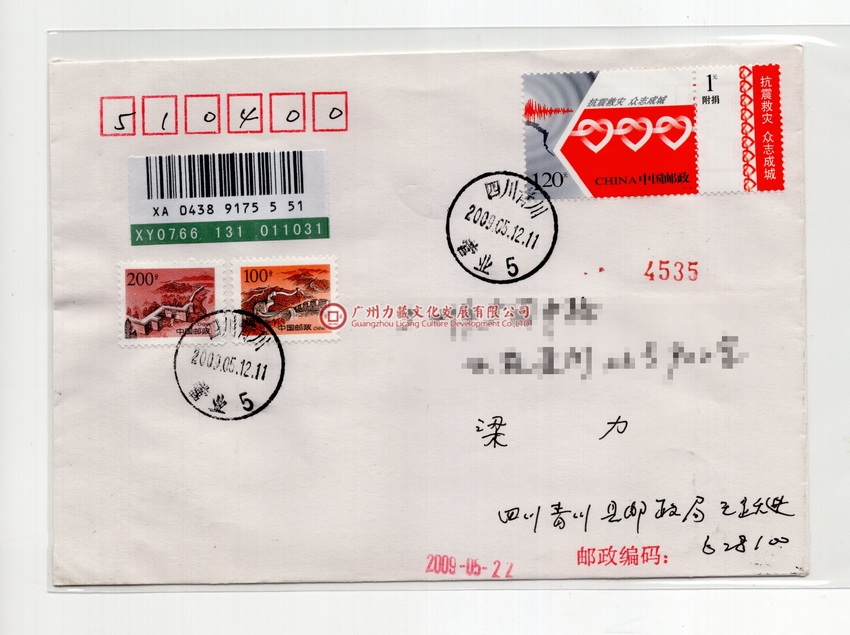 510400
XA 0438 9175 5 51
XY0766 131 011031
抗震救灾 众志成城
1元
附捐
抗震救灾 众志成城
120分
CHINA 中国邮政
四川青川
2009.05.12.11
5
4535
200分
中国邮政
100分
中国邮政
广州力藏文化发展有限公司
Guangzhou Licang Culture Development Co.,LTD
四川青川
2009.05.12.11
5
梁 力
四川青川县邮政局
邮政编码：628100
2009-05-22